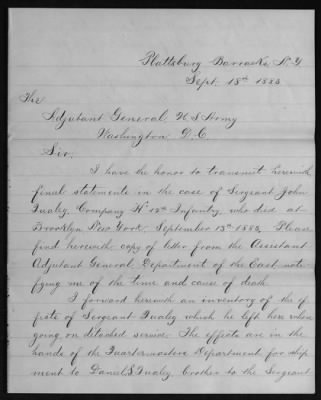 Plattsburg Barracks N.Y.
Sept. 18th 1883
The
Adjutant General, U S Army
Washington D.C
Sir;
I have the honor to transmit herewith
final statements in the case of Sergeant John
Company H 12th Infantry, who died at
Brooklyn New York, September 13th 1883. Please
find herewith copy of letter from the Assistant
Adjutant General, Department of the East noti
fying me of the time and cause of death.
I forward herewith an inventory of the ef
fects of Sergeant which he left here when
going on detached service. The effects are in the
hands of the Quartermasters Department for ship
ment to Daniel brother to the Sergeant